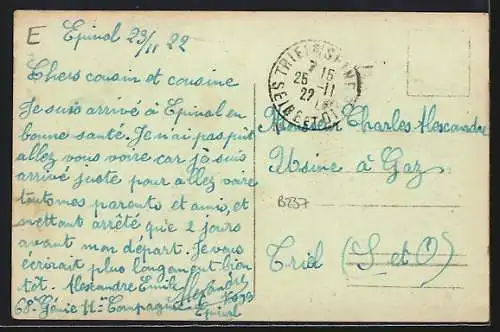 E
Epinal 23/11 22
Chers cousin et cousine
Je suis arrivé à Epinal en
bonne santé. Je n'ai pas put
allez vous voire car je suis
arrivé juste pour allez voire
tout mes parents et ami, et
mettant arrêté que 2 jours
avant mon départ. Je vous
écrirait plus longament bien
tôt. Alexandre Emile
68e Génie 11e Compagnie
Epinal
TRIEL S SEINE
7 15
25 -11
22
SEINE ET OISE
Monsieur Charles Alexandre
Usine à Gaz
B237
Triel (S et O)